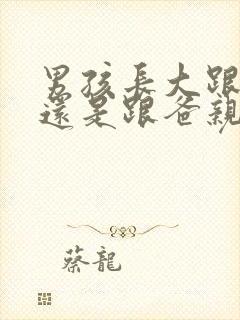 男孩長大跟
還是跟爸親
蔡龍